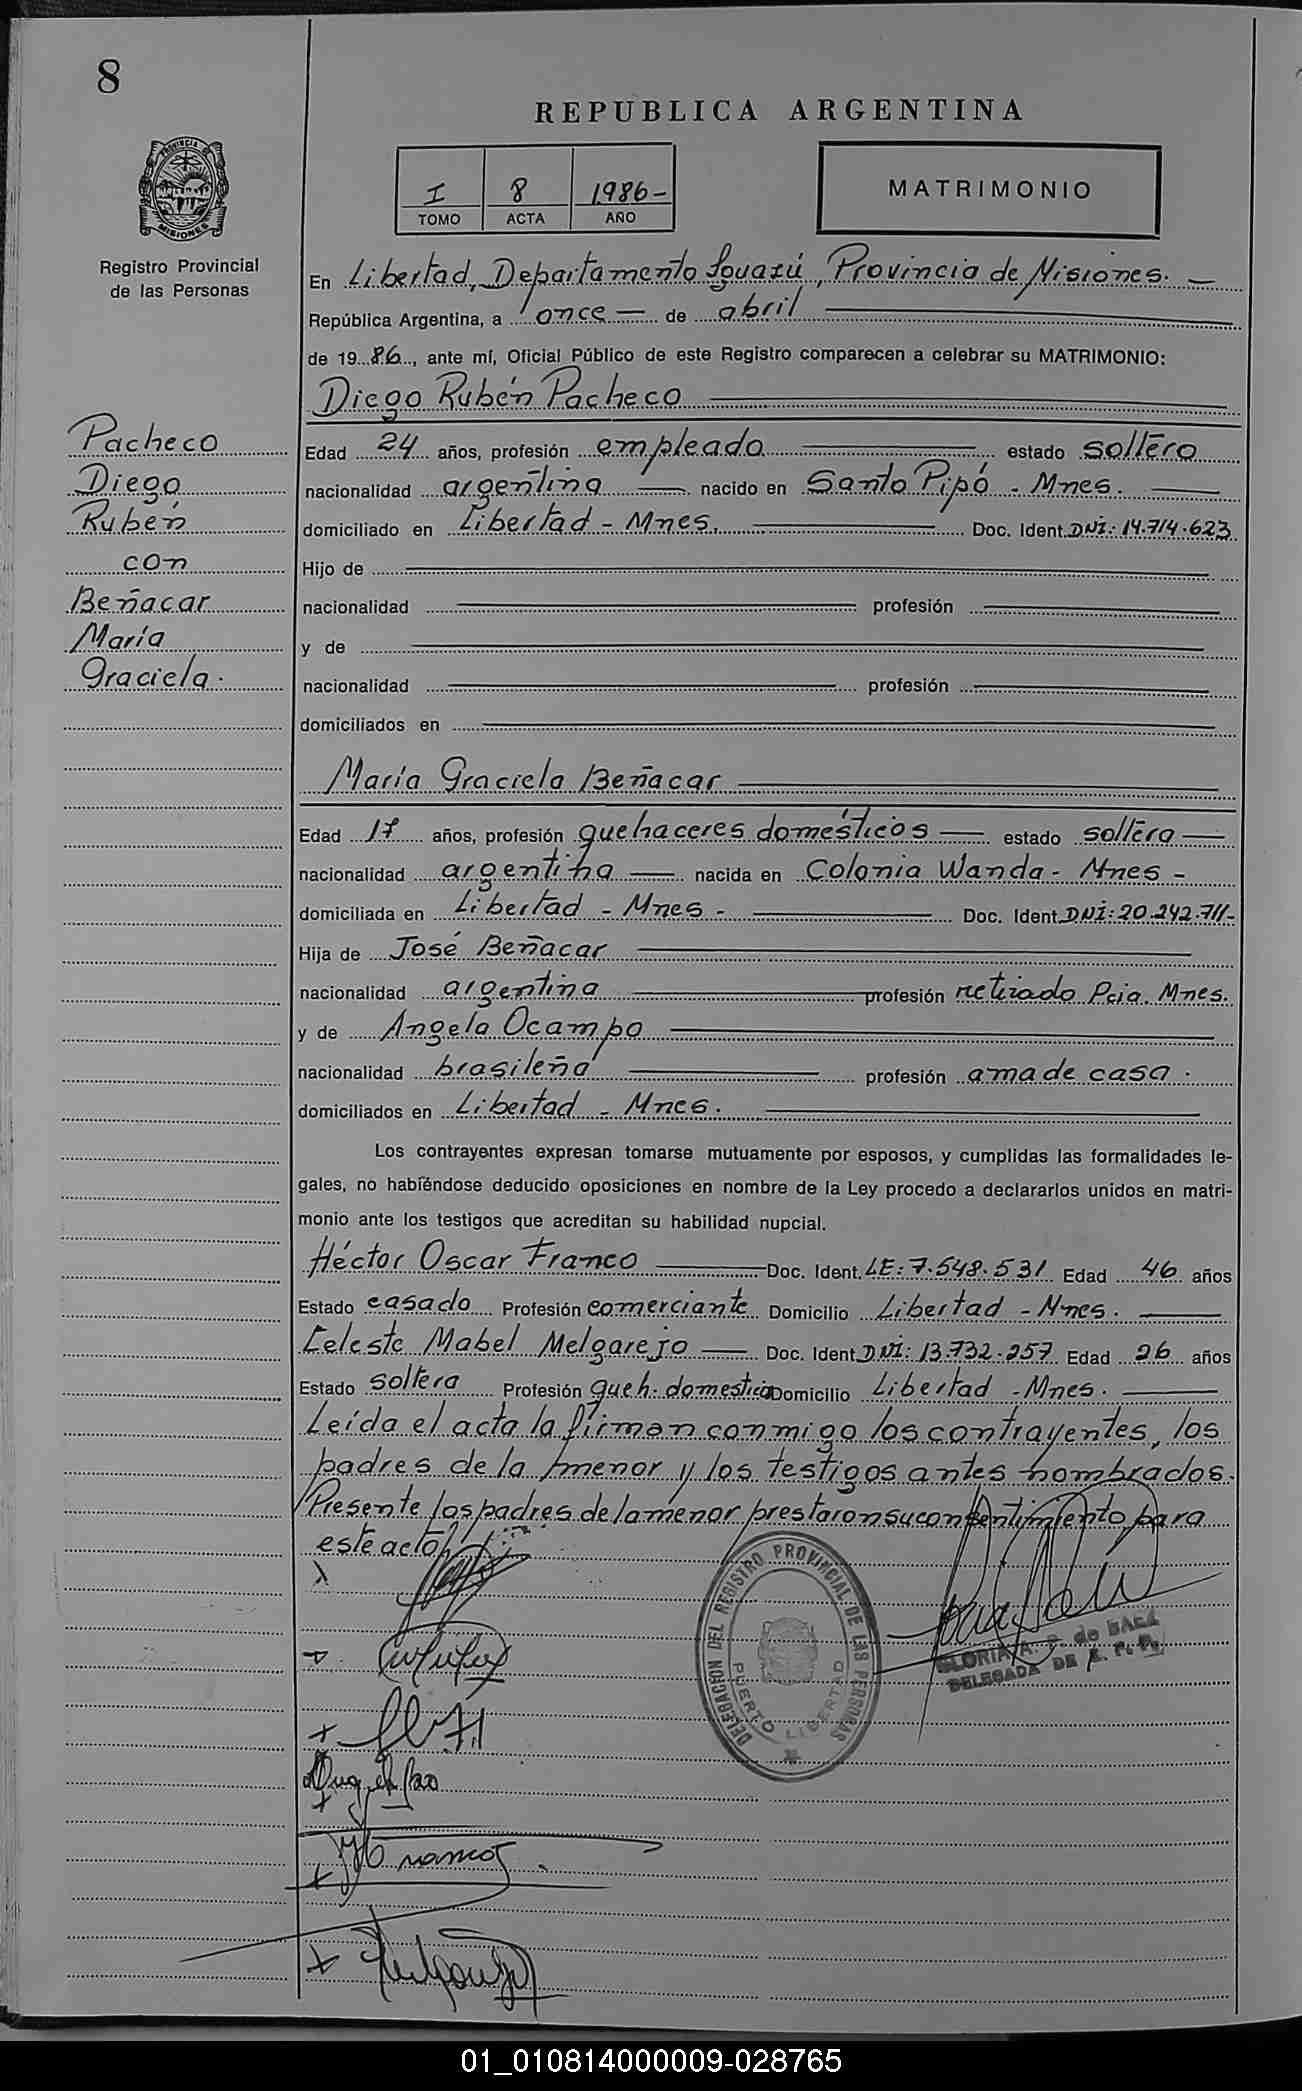 8
REPUBLICA ARGENTINA
PROVINCIA DE
MISIONES
Registro Provincial
de las Personas
I 8 1986-
TOMO ACTA AÑO
MATRIMONIO
En Libertad, Departamento Iguazú, Provincia de Misiones. —
República Argentina, a once — de abril
de 1986, ante mí, Oficial Público de este Registro comparecen a celebrar su MATRIMONIO:
Diego Rubén Pacheco
Pacheco
Diego
Rubén
con
Beñacar
María
Graciela.
Edad 24 años, profesión empleado estado soltero
nacionalidad argentina — nacido en Santo Pipó - Mnes. —
domiciliado en Libertad - Mnes. — Doc. Ident. DNI: 14.714.623
Hijo de
nacionalidad profesión
y de
nacionalidad profesión
domiciliados en
María Graciela Beñacar
Edad 17 años, profesión quehaceres domésticos — estado soltera —
nacionalidad argentina — nacida en Colonia Wanda - Mnes -
domiciliada en Libertad - Mnes - — Doc. Ident. DNI: 20.242.711-
Hija de José Beñacar
nacionalidad argentina profesión retirado Pcia. Mnes.
y de Angela Ocampo
nacionalidad brasileña profesión ama de casa.
domiciliados en Libertad - Mnes.
Los contrayentes expresan tomarse mutuamente por esposos, y cumplidas las formalidades le-
gales, no habiéndose deducido oposiciones en nombre de la Ley procedo a declararlos unidos en matri-
monio ante los testigos que acreditan su habilidad nupcial.
Héctor Oscar Franco — Doc. Ident. LE: 7.548.531 Edad 46 años
Estado casado Profesión comerciante Domicilio Libertad - Mnes. —
Celeste Mabel Melgarejo — Doc. Ident. DNI: 13.732.257 Edad 26 años
Estado soltera Profesión queh. domestico Domicilio Libertad - Mnes. —
Leída el acta la firman conmigo los contrayentes, los
padres de la menor y los testigos antes nombrados.
Presente los padres de la menor prestaron su consentimiento para
este acto
DELEGACION DEL REGISTRO PROVINCIAL DE LAS PERSONAS
PUERTO LIBERTAD
GLORIA A. de BAEZ
DELEGADA DE R. P. P.
01_010814000009-028765